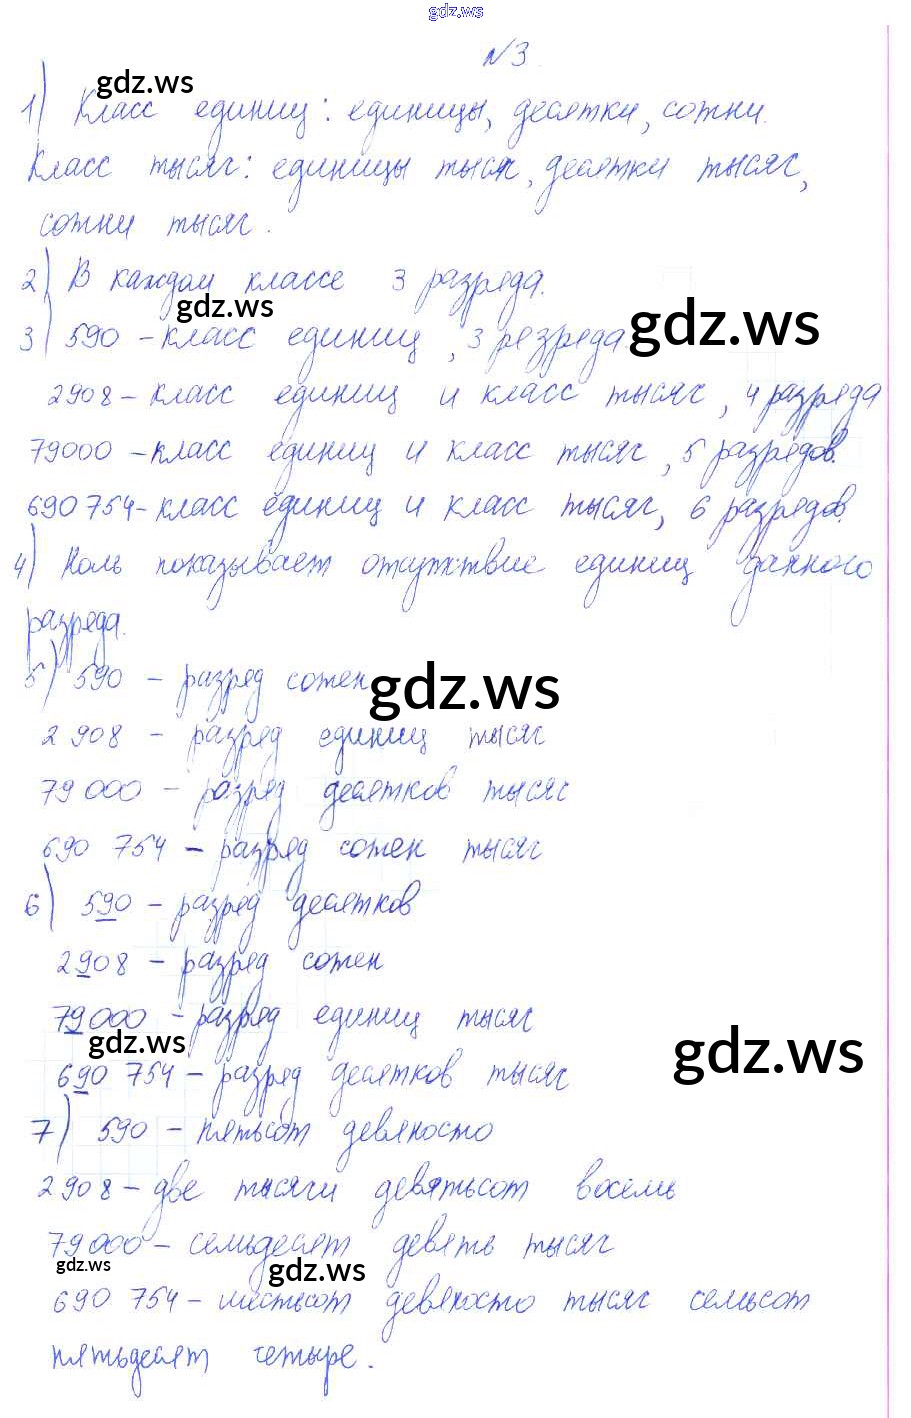 gdz.ws
№3.
gdz.ws
1) Класс единиц: единицы, десятки, сотни.
Класс тысяч: единицы тысяч, десятки тысяч,
сотни тысяч.
2) В каждом классе 3 разряда.
gdz.ws
gdz.ws
3) 590 – класс единиц, 3 резряда.
2908 – класс единиц и класс тысяч, 4 разряда
79000 – класс единиц и класс тысяч, 5 разрядов.
690 754 – класс единиц и класс тысяч, 6 разрядов.
4) Ноль показывает отсутствие единиц данного
разряда.
5) 590 – разряд сотен
gdz.ws
2 908 – разряд единиц тысяч
79 000 – разряд десятков тысяч
690 754 – разряд сотен тысяч
6) 590 – разряд десятков
2908 – разряд сотен
79000 – разряд единиц тысяч
gdz.ws
gdz.ws
690 754 – разряд десятков тысяч
7) 590 – пятьсот девяносто
2 908 – две тысячи девятьсот восемь
79 000 – семьдесят девять тысяч
gdz.ws
gdz.ws
690 754 – шестьсот девяносто тысяч семьсот
пятьдесят четыре.